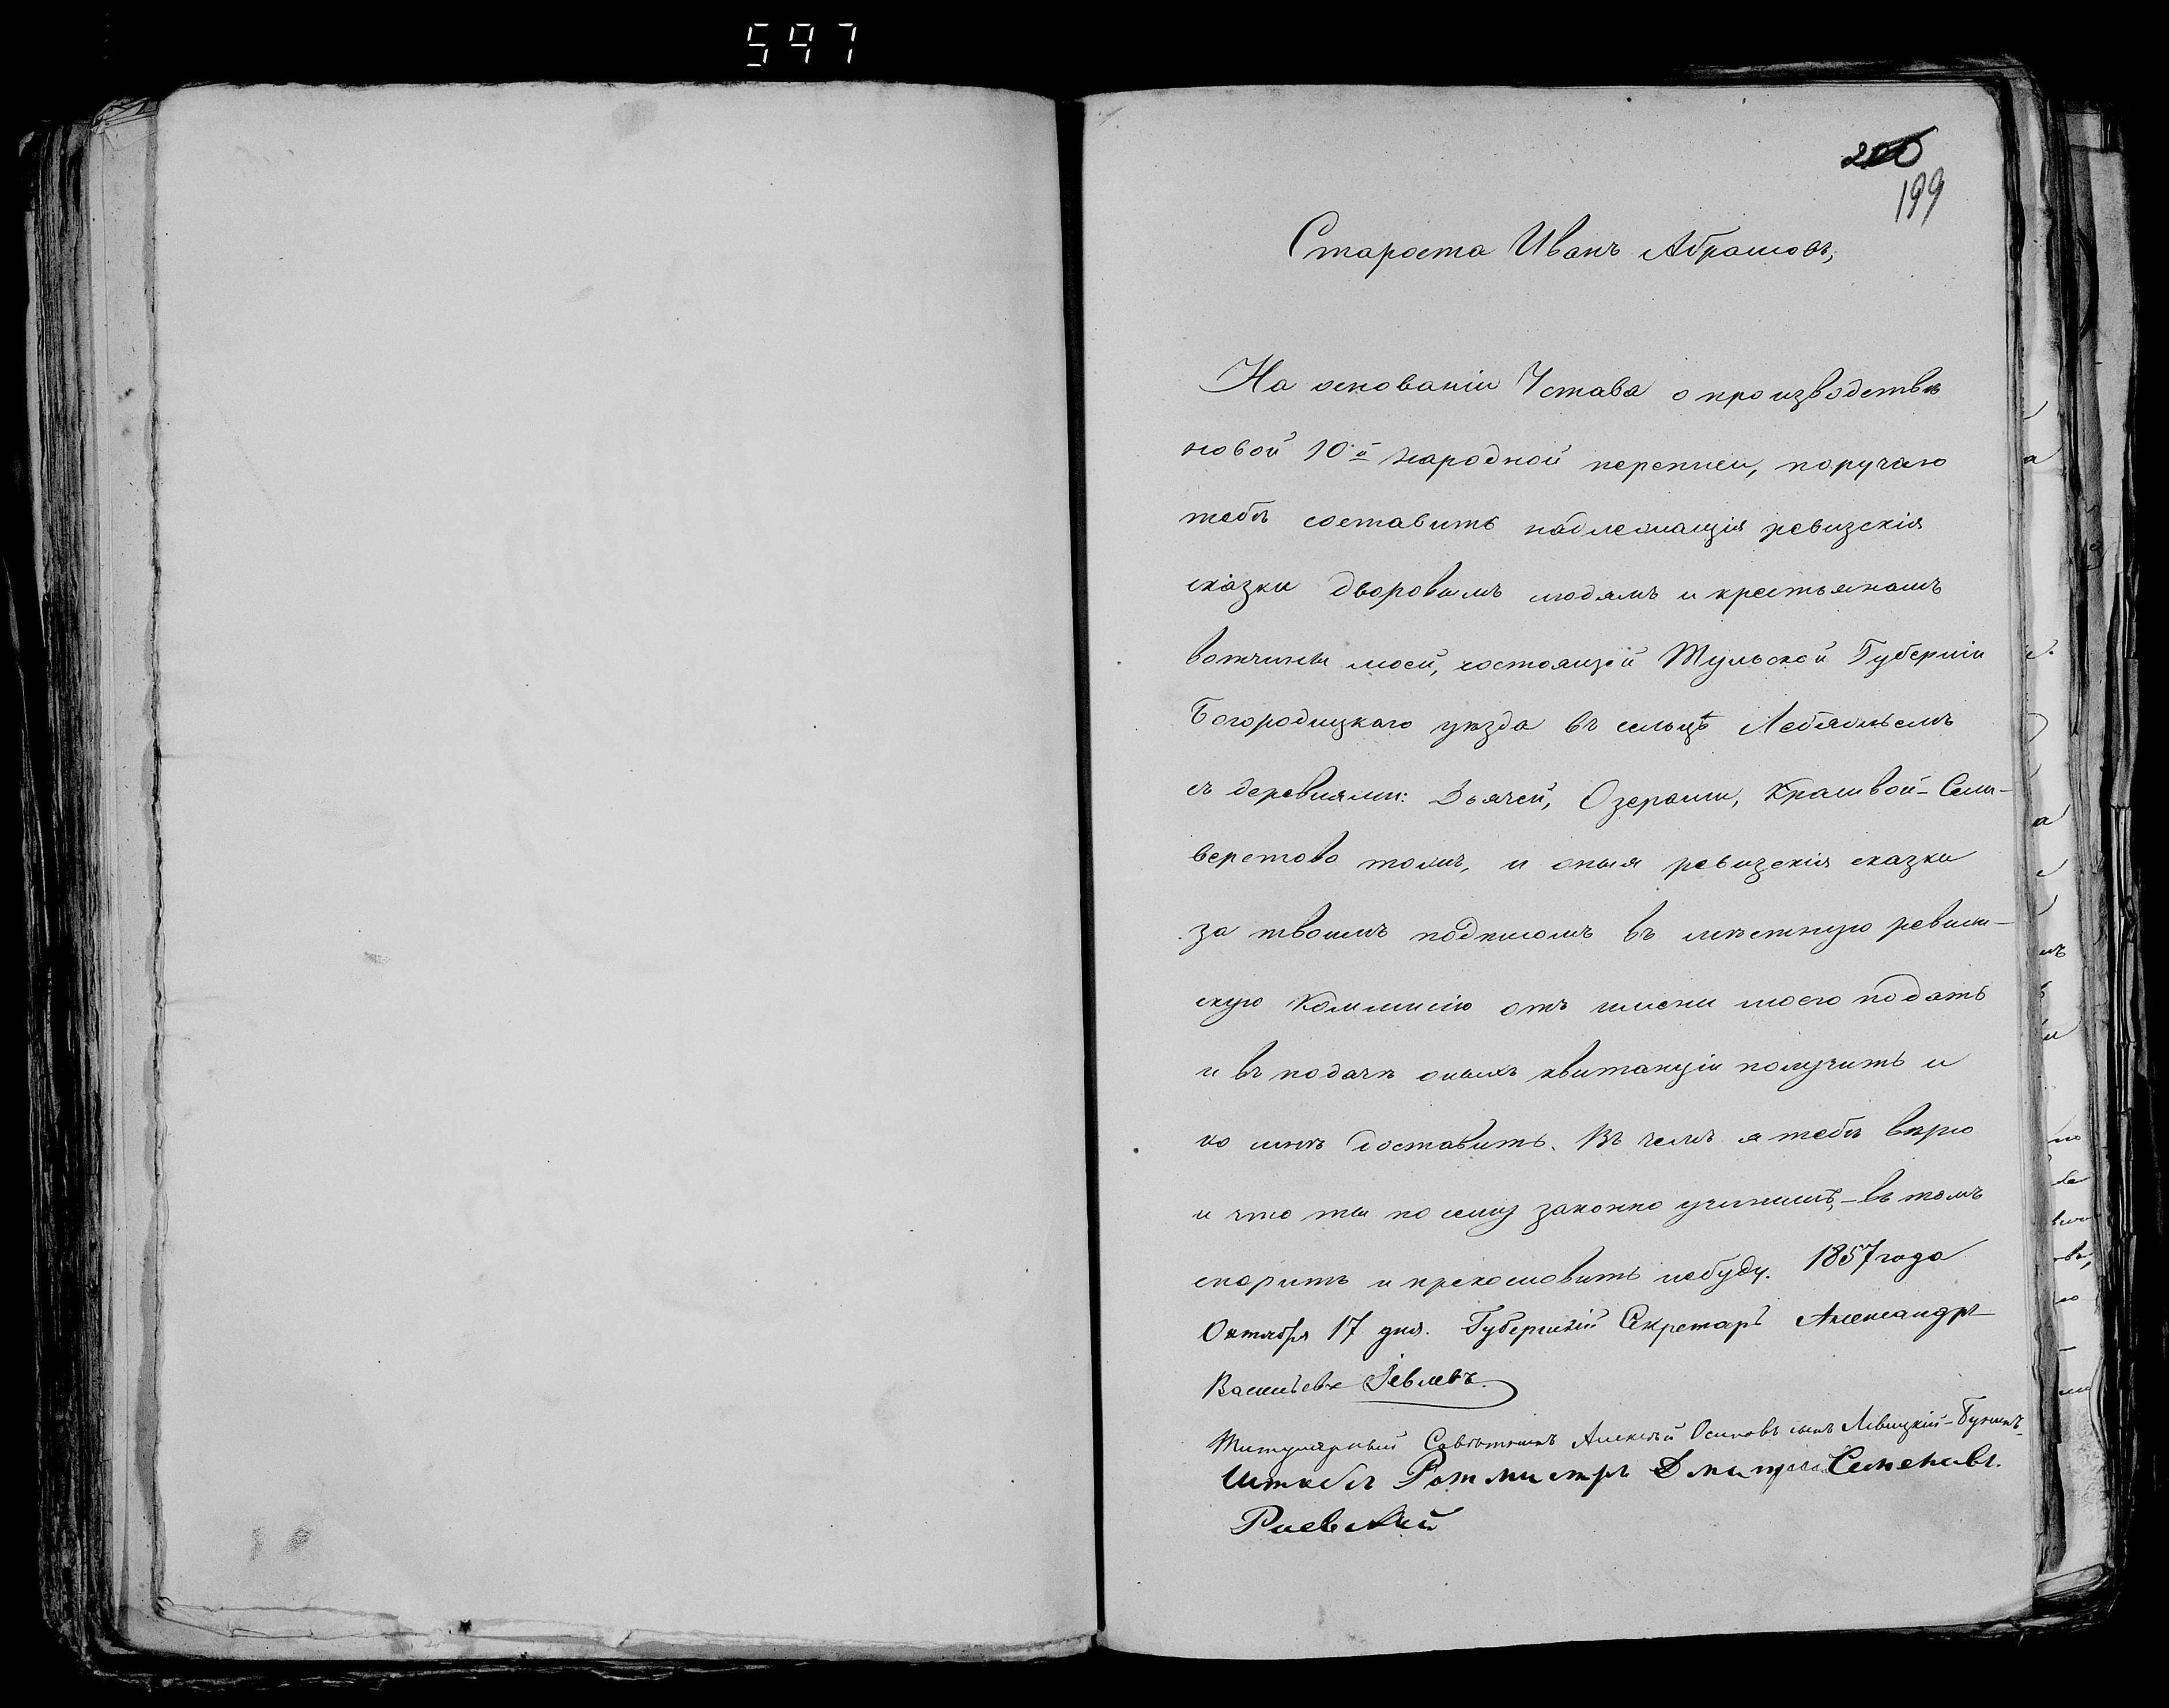 597
200
199
Староста Иванъ Абрамовъ,
На основаніи Устава о производствѣ
новой 10й народной переписи, поручаю
тебѣ составить надлежащія ревизскія
сказки дворовымъ людямъ и крестьянамъ
вотчины моей, состоящей Тульской Губерніи
Богородицкаго уѣзда въ сельцѣ Лебяжьемъ
съ деревнями: Озерами, Крапивой-Сели-
верстово тожъ, и оныя ревизскія сказки
за твоимъ подписомъ въ мѣстную ревиж-
скую Коммисію отъ имени моего подать
и въ подачѣ оныхъ квитанціи получить и
ко мнѣ доставить. Въ чемъ я тебѣ вѣрю
и что ты по сему законно учинишъ,-въ томъ
спорить и прекословить небуду. 1857 года
Октября 17 дня. Губернскій Секретарь Александръ
Васильевъ Іевлевъ.
Титулярный Совѣтникъ Алексѣй Осиповъ сынъ Левицкій-
Штабсъ Ротмистръ Дмитрій Семеновъ.
Раевский